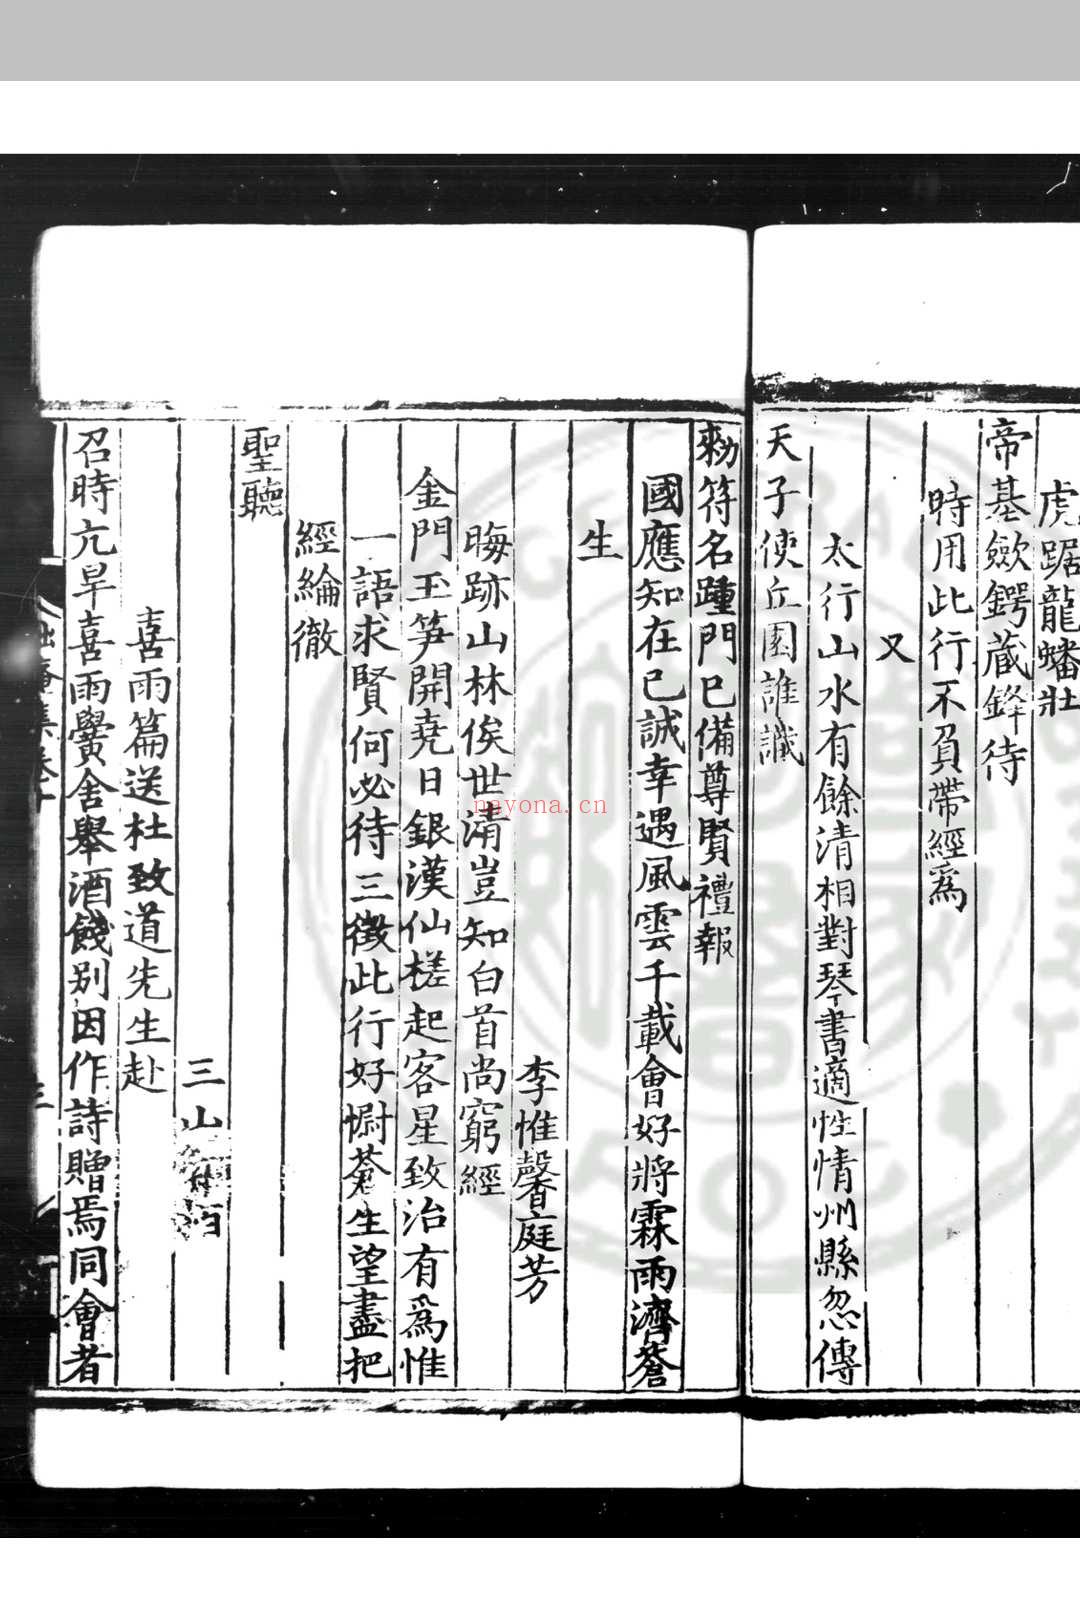 虎踞龍蟠壯
帝基歛鍔蔵鋒待
時用此行不負帶經爲
又
太行山水有餘清相對琴書適性情州縣忽傳
天子使丘園誰識
勑符名踵門已備尊賢禮報
國應知在已誠幸遇風雲千載會好將霖雨濟蒼
生
李惟馨庭芳
晦跡山林俟世淸豈知白首尚窮經
金門玉笋開堯日銀漢仙槎起客星致治有爲惟
一語求賢何必待三徵此行好慰蒼生望盡把
經綸徹
聖聽
三山
喜雨篇送杜致道先生赴
召時亢旱喜雨黌舍舉酒餞别因作詩贈焉同會者
集卷十
nayona.cn